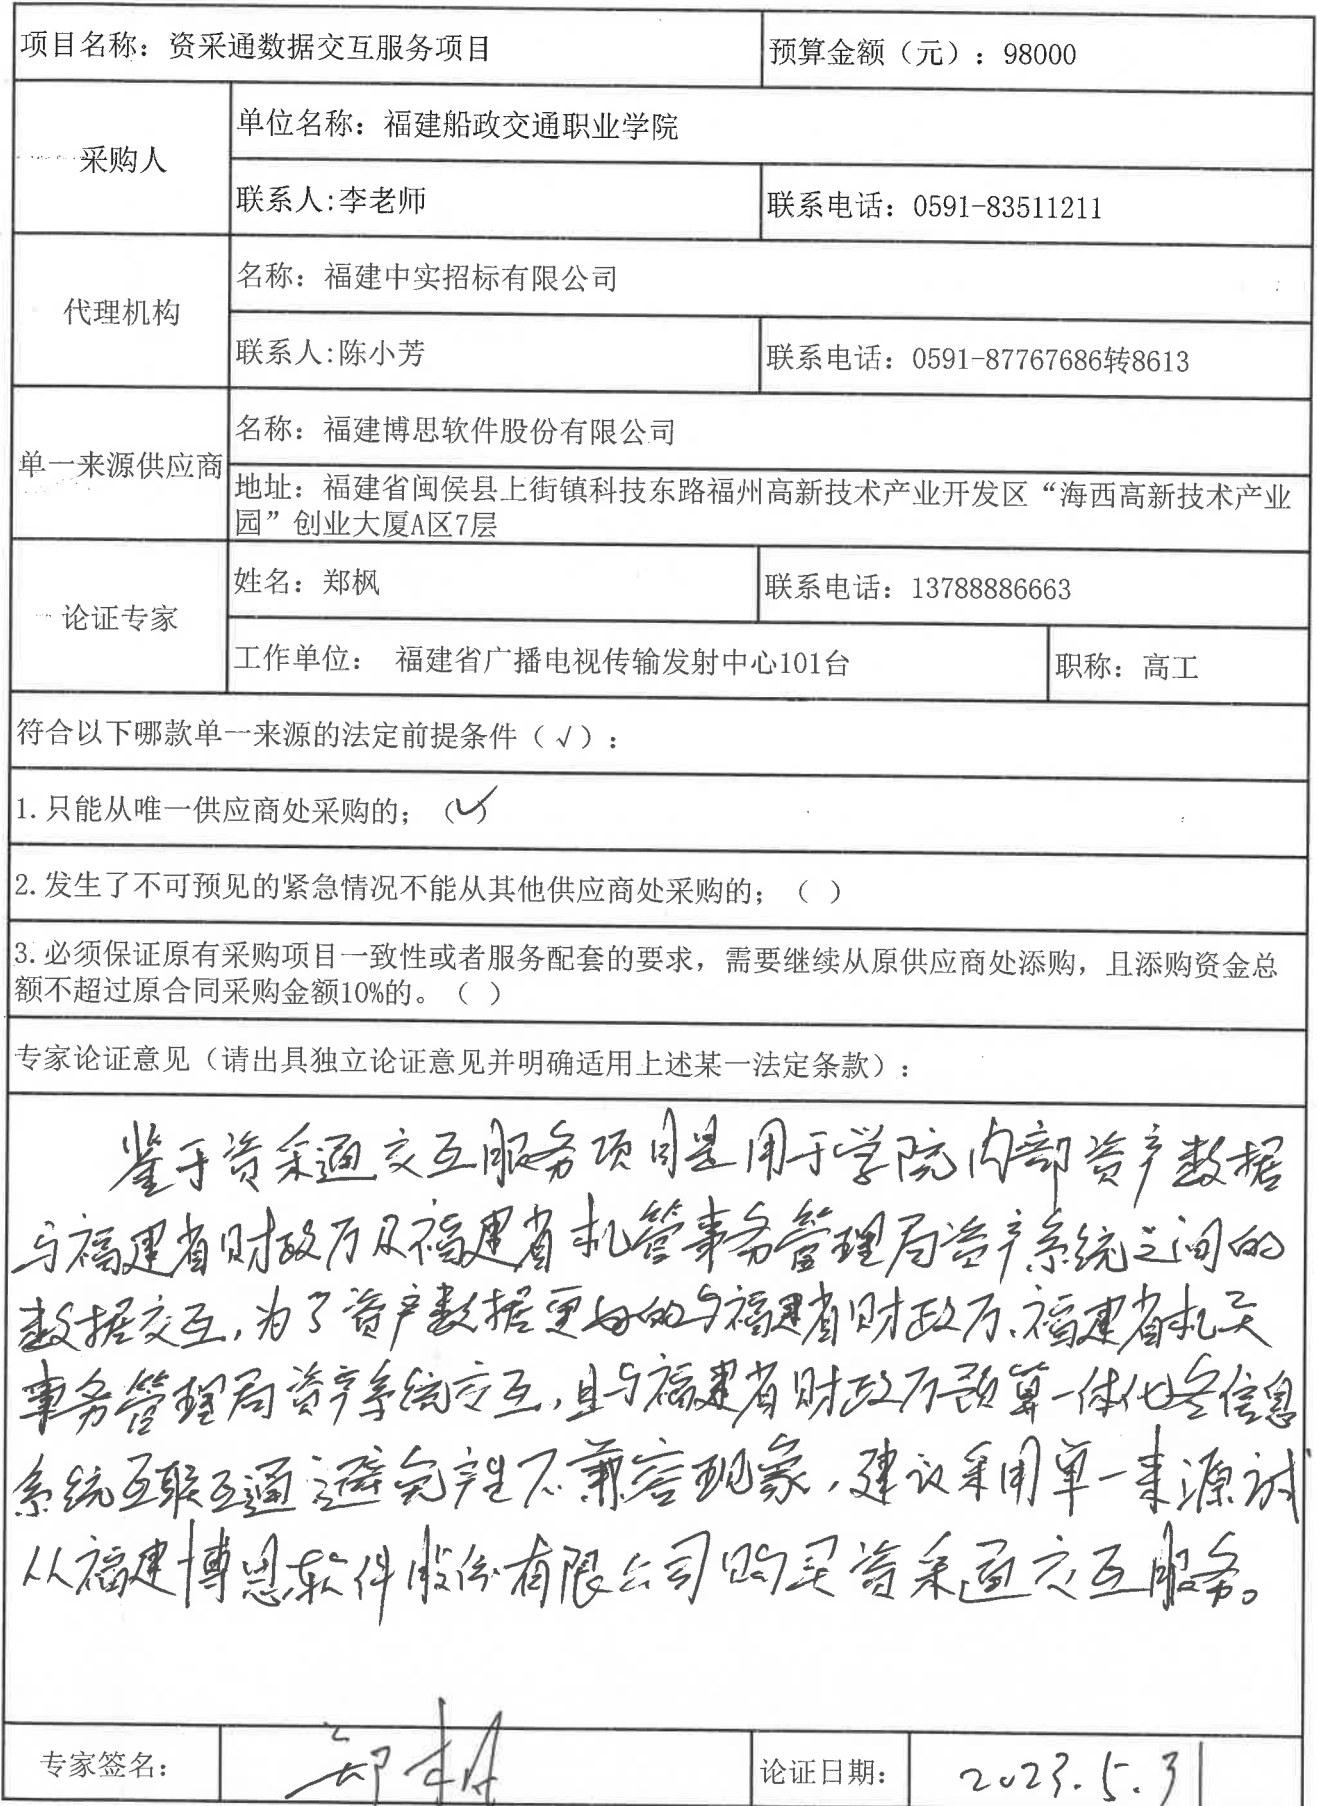 项目名称：资采通数据交互服务项目 预算金额（元）：98000
采购人
单位名称：福建船政交通职业学院
联系人:李老师 联系电话：0591-83511211
代理机构
名称：福建中实招标有限公司
联系人:陈小芳 联系电话：0591-87767686转8613
单一来源供应商
名称：福建博思软件股份有限公司
地址：福建省闽侯县上街镇科技东路福州高新技术产业开发区“海西高新技术产业
园”创业大厦A区7层
论证专家
姓名：郑枫 联系电话：13788886663
工作单位： 福建省广播电视传输发射中心101台 职称：高工
符合以下哪款单一来源的法定前提条件（√）：
1.只能从唯一供应商处采购的；（✓）
2.发生了不可预见的紧急情况不能从其他供应商处采购的；（ ）
3.必须保证原有采购项目一致性或者服务配套的要求，需要继续从原供应商处添购，且添购资金总
额不超过原合同采购金额10%的。（ ）
专家论证意见（请出具独立论证意见并明确适用上述某一法定条款）：
鉴于资采通交互服务项目是用于学院内部资产数据
与福建省财政厅及福建省机管事务管理局资产系统之间的
数据交互,为了资产数据更好的与福建省财政厅、福建省机关
事务管理局资产系统交互,且与福建省财政厅预算一体化等信息
系统互联互通,避免产生不兼容现象,建议采用单一来源式
从福建博思软件股份有限公司购买资采通交互服务。
专家签名： 郑枫 论证日期： 2023.5.31